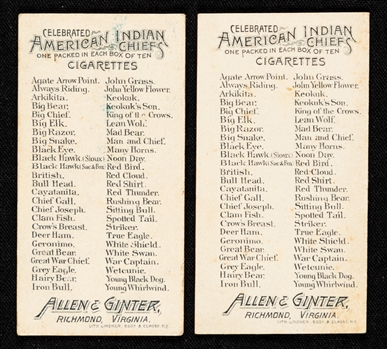 CELEBRATED
AMERICAN INDIAN
CHIEFS
ONE PACKED IN EACH BOX OF TEN
CIGARETTES
Agate Arrow Point. John Grass.
Always Riding. John Yellow Flower.
Arkikita. Keokuk.
Big Bear. Keokuk's Son.
Big Chief. King of the Crows.
Big Elk. Lean Wolf.
Big Razor. Mad Bear.
Big Snake. Man and Chief.
Black Eye. Many Horns.
Black Hawk (Sioux) Noon Day.
Black Hawk (Sac & Fox) Red Bird.
British. Red Cloud.
Bull Head. Red Shirt.
Cayatanita. Red Thunder.
Chief Gall. Rushing Bear.
Chief Joseph. Sitting Bull.
Clam Fish. Spotted Tail.
Crow's Breast. Striker.
Deer Ham. True Eagle.
Geronimo. White Shield.
Great Bear. White Swan.
Great War Chief. War Captain.
Grey Eagle. Wetcunie.
Hairy Bear. Young Black Dog.
Iron Bull. Young Whirlwind.
ALLEN & GINTER,
RICHMOND, VIRGINIA.
LITH. LINDNER, EDDY & CLAUSS, N.Y.
CELEBRATED
AMERICAN INDIAN
CHIEFS
ONE PACKED IN EACH BOX OF TEN
CIGARETTES
Agate Arrow Point. John Grass.
Always Riding. John Yellow Flower.
Arkikita. Keokuk.
Big Bear. Keokuk's Son.
Big Chief. King of the Crows.
Big Elk. Lean Wolf.
Big Razor. Mad Bear.
Big Snake. Man and Chief.
Black Eye. Many Horns.
Black Hawk (Sioux) Noon Day.
Black Hawk (Sac & Fox) Red Bird.
British. Red Cloud.
Bull Head. Red Shirt.
Cayatanita. Red Thunder.
Chief Gall. Rushing Bear.
Chief Joseph. Sitting Bull.
Clam Fish. Spotted Tail.
Crow's Breast. Striker.
Deer Ham. True Eagle.
Geronimo. White Shield.
Great Bear. White Swan.
Great War Chief. War Captain.
Grey Eagle. Wetcunie.
Hairy Bear. Young Black Dog.
Iron Bull. Young Whirlwind.
ALLEN & GINTER,
RICHMOND, VIRGINIA.
LITH. LINDNER, EDDY & CLAUSS, N.Y.